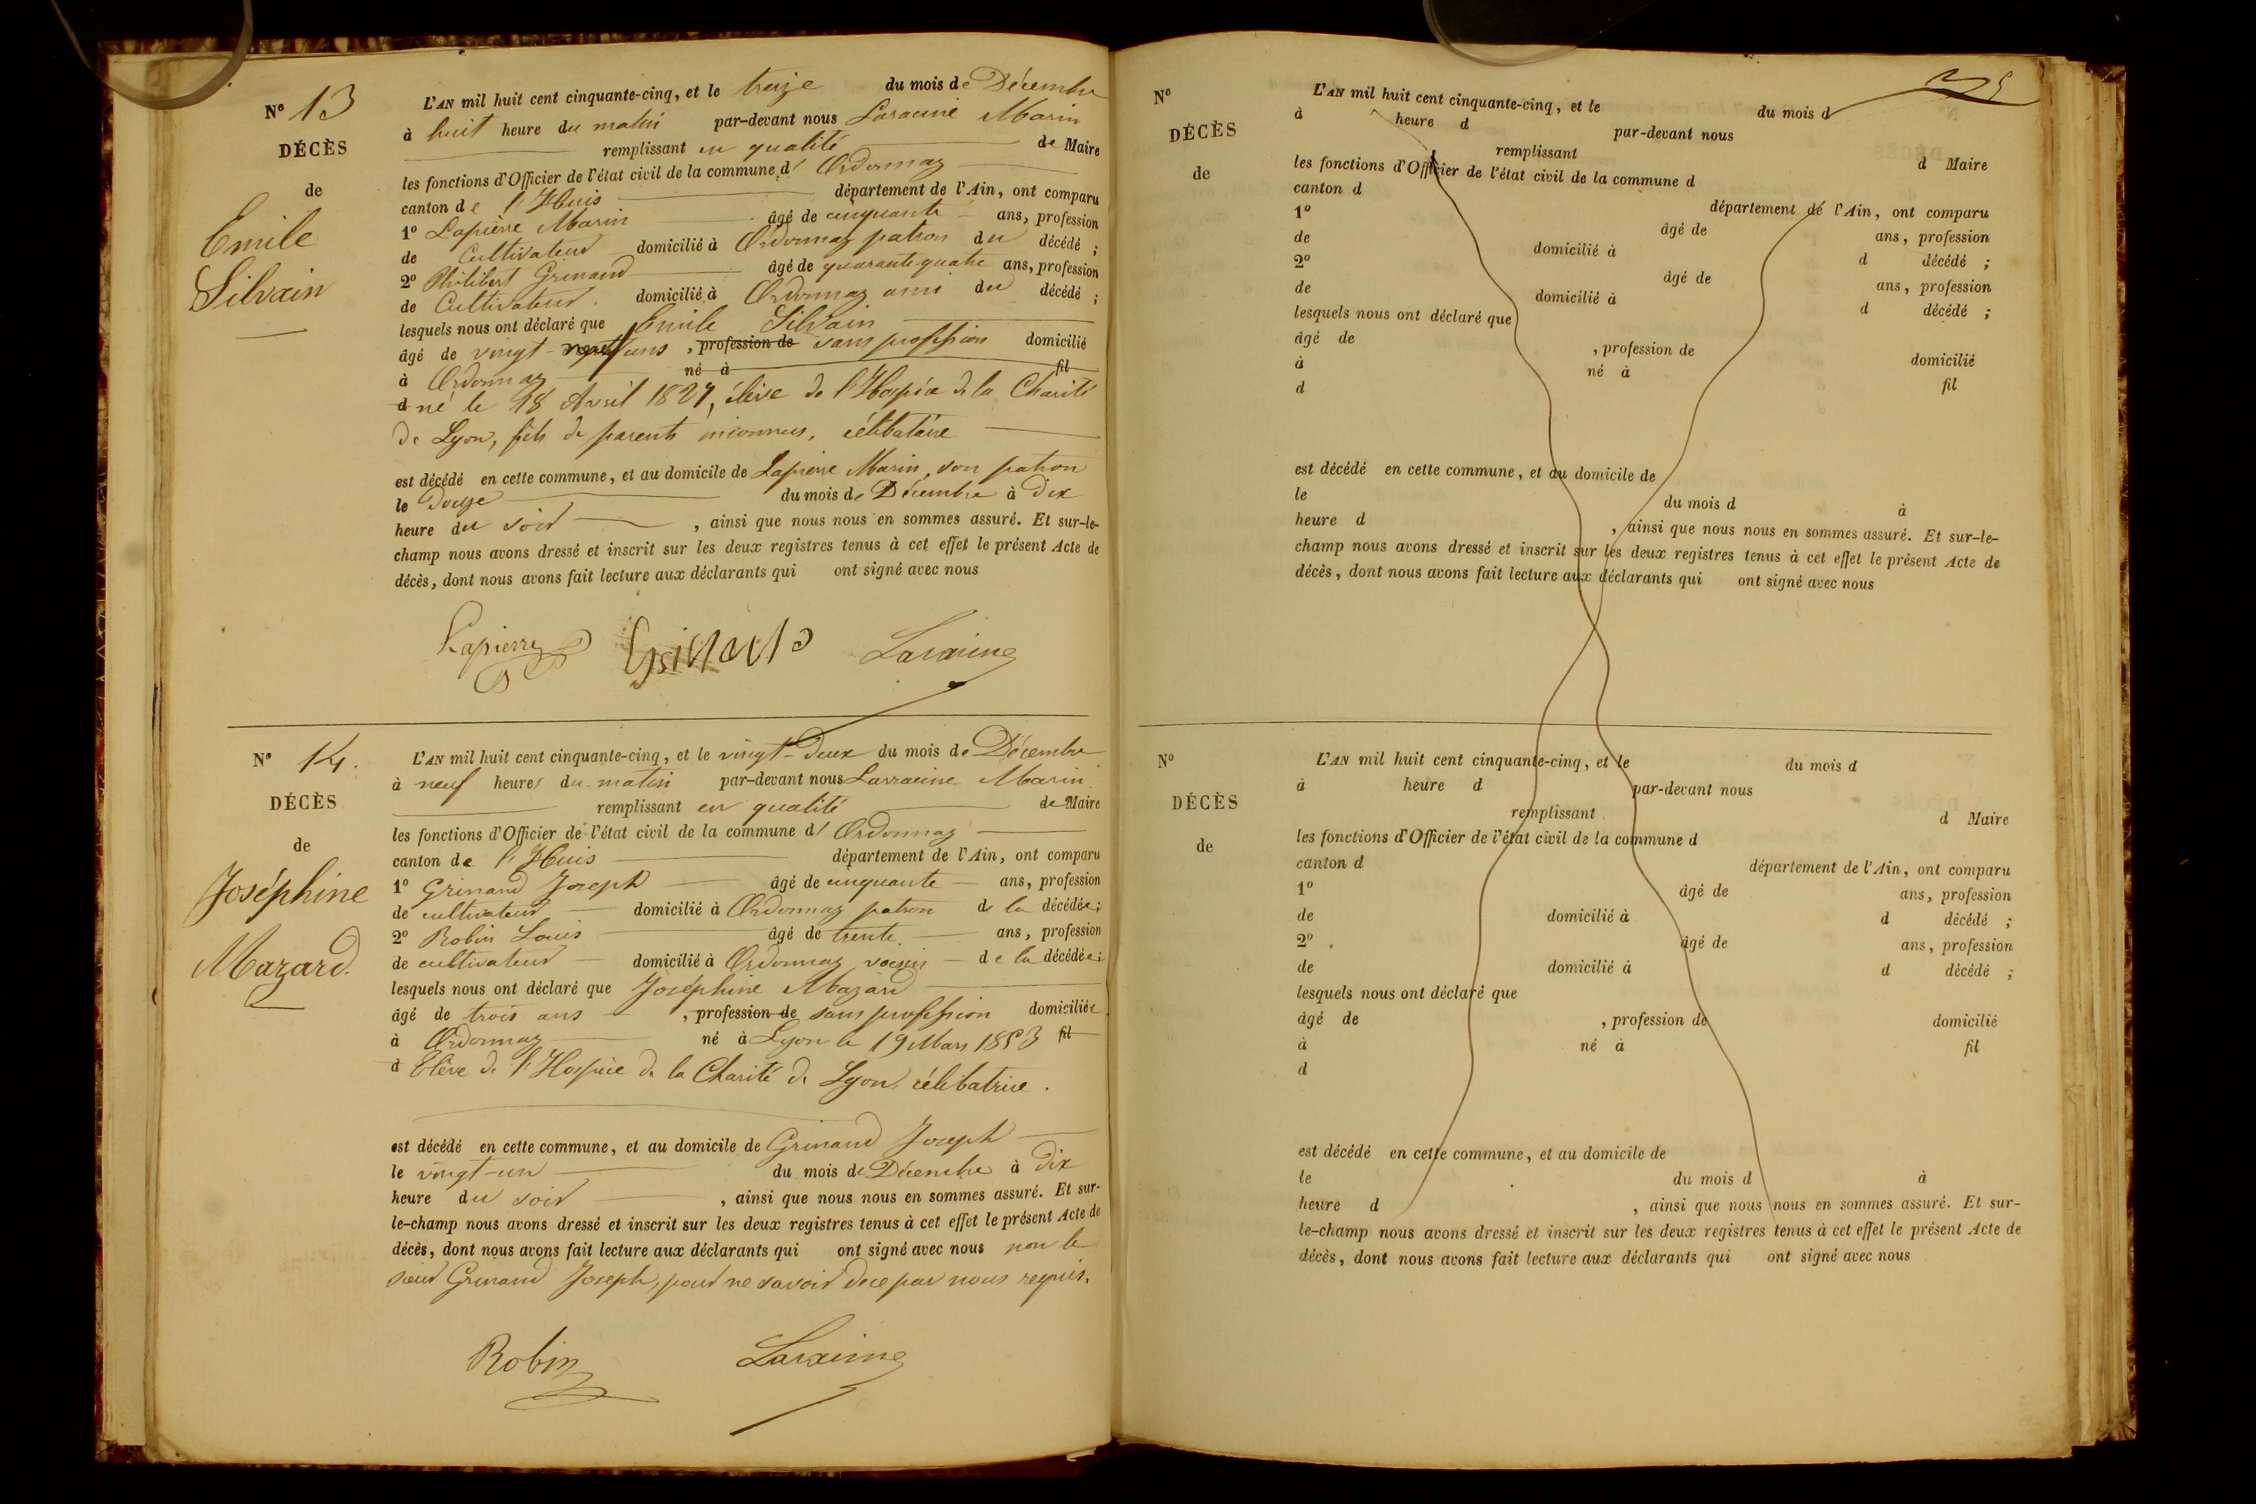 N° 13
DÉCÈS
de
Emile
Silvain
L'AN mil huit cent cinquante-cinq, et le treize du mois de Décembre
à huit heure du matin par-devant nous Laracine Marin
remplissant en qualité de Maire
les fonctions d'Officier de l'état civil de la commune d' Ordonnaz
canton de l'Huis département de l'Ain, ont comparu
1° Lapierre Marin âgé de cinquante ans, profession
de Cultivateur domicilié à Ordonnaz patron du décédé ;
2° Philibert Grinand âgé de quarante-quatre ans, profession
de Cultivateur domicilié à Ordonnaz ami du décédé ;
lesquels nous ont déclaré que Emile Silvain
âgé de vingt-neuf ans , profession de sans profession domicilié
à Ordonnaz né à fil
d né le 18 Avril 1827, élève de l'Hospice de la Charité
de Lyon, fils de parents inconnus, célibataire
est décédé en cette commune, et au domicile de Lapierre Marin, son patron
le Douze du mois de Décembre à Dix
heure du soir , ainsi que nous nous en sommes assuré. Et sur-le-
champ nous avons dressé et inscrit sur les deux registres tenus à cet effet le présent Acte de
décès, dont nous avons fait lecture aux déclarants qui ont signé avec nous
Lapierre Grinand Laracine
N° 14.
DÉCÈS
de
Joséphine
Mazard.
L'AN mil huit cent cinquante-cinq, et le vingt-deux du mois de Décembre
à neuf heures du matin par-devant nous Larracine Marin
remplissant en qualité de Maire
les fonctions d'Officier de l'état civil de la commune d' Ordonnaz
canton de l'Huis département de l'Ain, ont comparu
1° Grinand Joseph âgé de cinquante ans, profession
de cultivateur domicilié à Ordonnaz patron de la décédée ;
2° Robin Louis âgé de trente ans, profession
de cultivateur domicilié à Ordonnaz voisin de la décédée ;
lesquels nous ont déclaré que Joséphine Mazard
âgé de trois ans , profession de sans profession domiciliée
à Ordonnaz né à Lyon le 19 Mars 1853 fil
d Elève de l'Hospice de la Charité de Lyon, célibatrice.
est décédé en cette commune, et au domicile de Grinand Joseph
le vingt-un du mois de Décembre à Dix
heure du soir , ainsi que nous nous en sommes assuré. Et sur-
le-champ nous avons dressé et inscrit sur les deux registres tenus à cet effet le présent Acte de
décès, dont nous avons fait lecture aux déclarants qui ont signé avec nous non le
sieur Grinand Joseph, pour ne savoir de ce par nous requis.
Robin Laracine
N°
DÉCÈS
de
L'AN mil huit cent cinquante-cinq, et le du mois d
à heure d par-devant nous
remplissant d Maire
les fonctions d'Officier de l'état civil de la commune d
canton d département de l'Ain, ont comparu
1° âgé de ans, profession
de domicilié à d décédé ;
2° âgé de ans, profession
de domicilié à d décédé ;
lesquels nous ont déclaré que
âgé de , profession de domicilié
à né à fil
d
est décédé en cette commune, et au domicile de
le du mois d à
heure d , ainsi que nous nous en sommes assuré. Et sur-le-
champ nous avons dressé et inscrit sur les deux registres tenus à cet effet le présent Acte de
décès, dont nous avons fait lecture aux déclarants qui ont signé avec nous
N°
DÉCÈS
de
L'AN mil huit cent cinquante-cinq, et le du mois d
à heure d par-devant nous
remplissant d Maire
les fonctions d'Officier de l'état civil de la commune d
canton d département de l'Ain, ont comparu
1° âgé de ans, profession
de domicilié à d décédé ;
2° âgé de ans, profession
de domicilié à d décédé ;
lesquels nous ont déclaré que
âgé de , profession de domicilié
à né à fil
d
est décédé en cette commune, et au domicile de
le du mois d à
heure d , ainsi que nous nous en sommes assuré. Et sur-
le-champ nous avons dressé et inscrit sur les deux registres tenus à cet effet le présent Acte de
décès, dont nous avons fait lecture aux déclarants qui ont signé avec nous